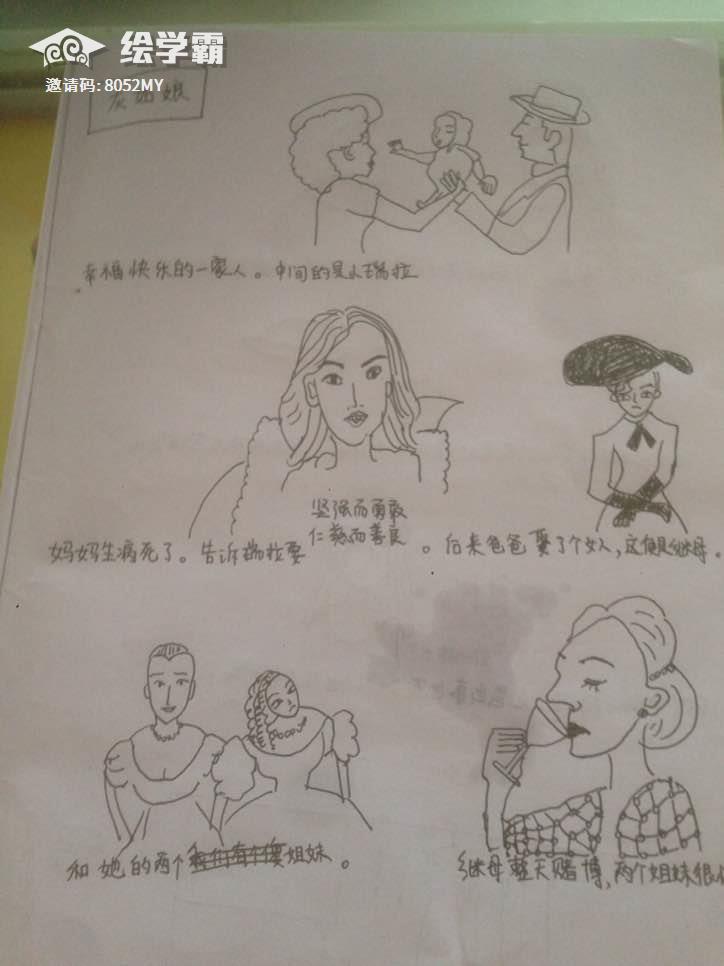 绘学霸
邀请码: 8052MY
灰姑娘
幸福快乐的一家人。中间的是小瑞拉
坚强而勇敢
仁慈而善良
妈妈生病死了。告诉瑞拉要 。后来爸爸娶了个女人,这便是继母。
和她的两个 姐妹。
继母整天赌博,两个姐妹很